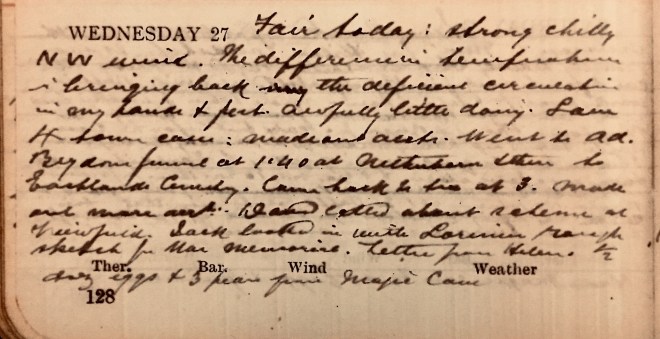 WEDNESDAY 27 Fair today: strong chilly
NW wind. The difference in temperature
is bringing back the deficient circulation
in my hands & feet. Awfully little doing. Saw
4 town cases: made out accts. Went to Ad.
funeral at 1.40 at to
Eastlands Cemetery. Came back to tea at 3. Made
out more accts. called about scheme at
Viewfield. Jack looked in with Lorimer rough
sketch for War Memorial. Letter from Helen. ½
doz eggs & 3 pears from Magie
Ther. Bar. Wind Weather
128